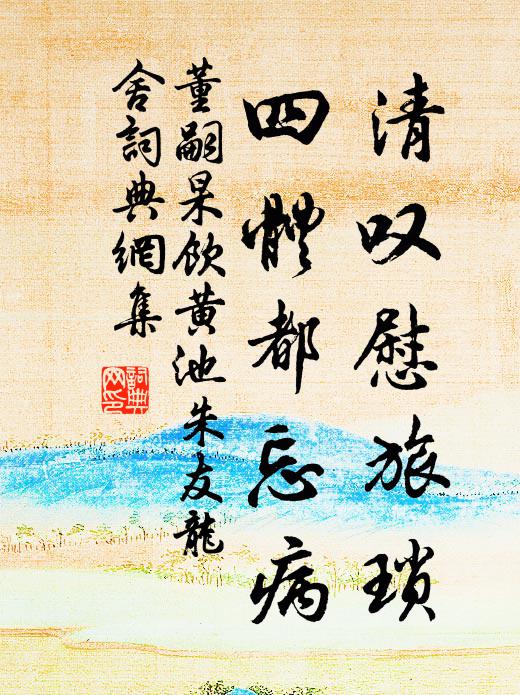 清叹慰旅瑣
四體都忘病
董嗣杲飲黄池朱友龍
舍詞典網集
詞典網印